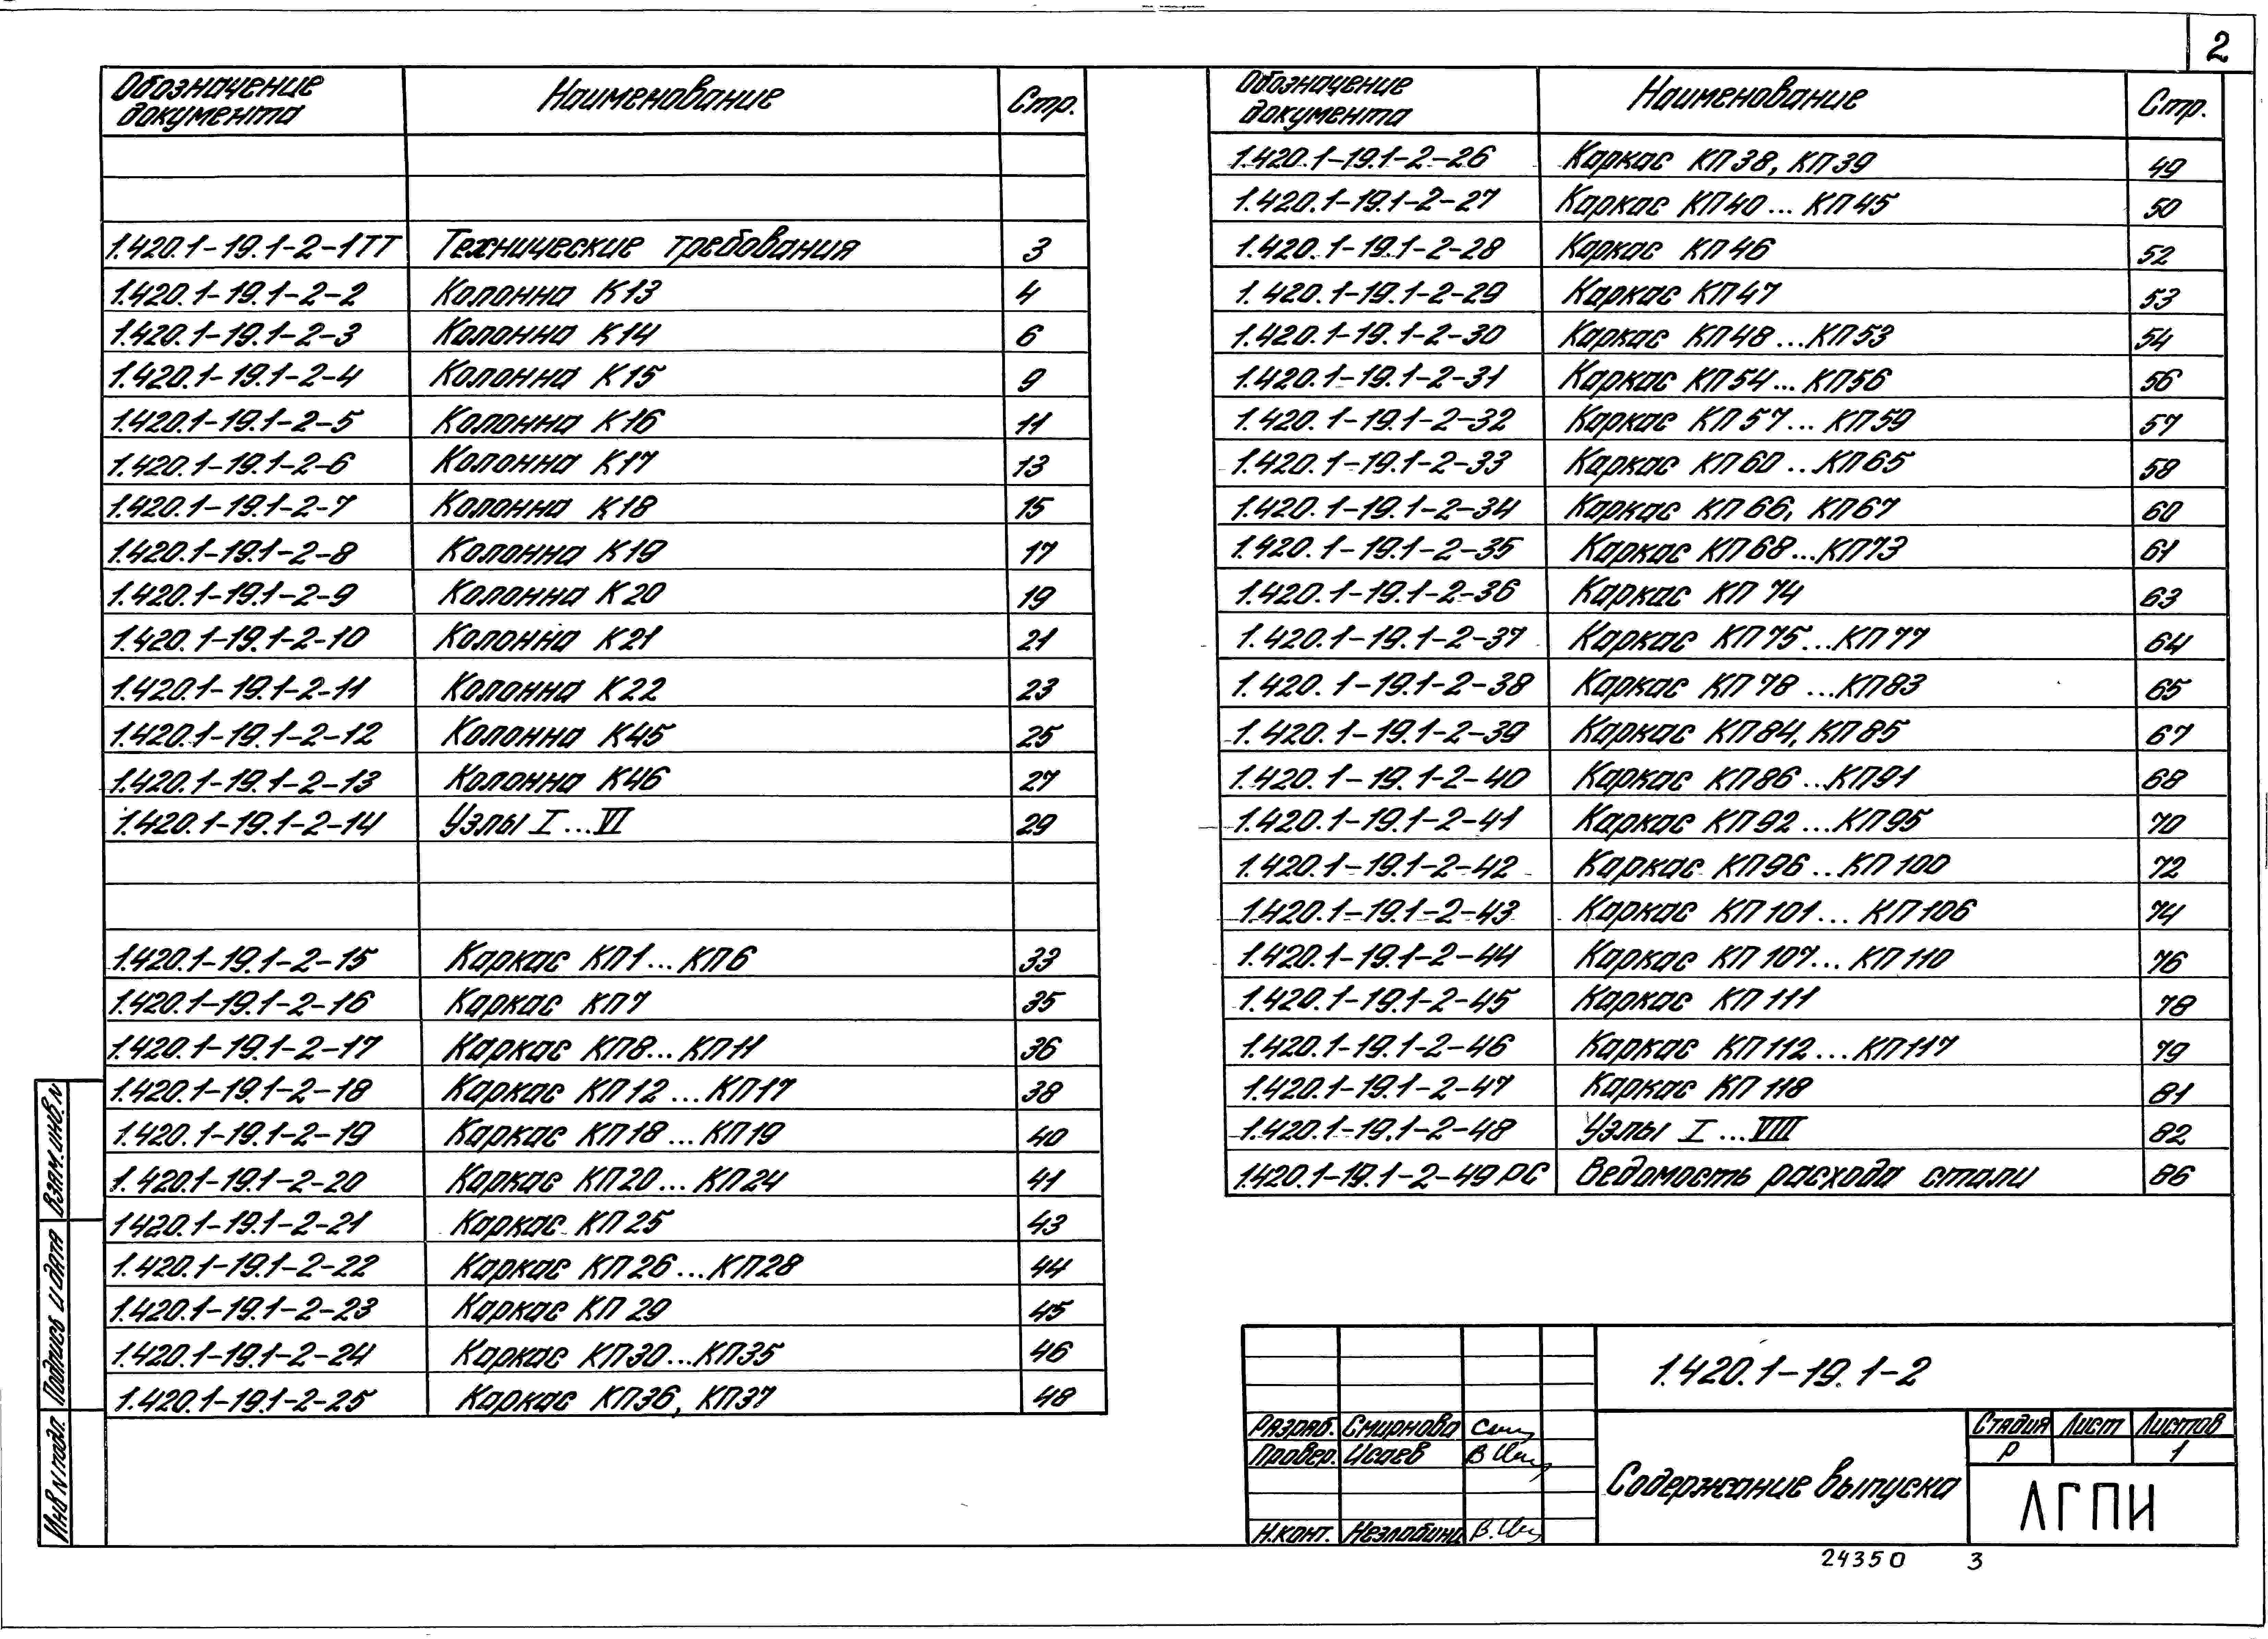 2
Обозначение документа Наименование Стр.
1.420.1-19.1-2-1ТТ Технические требования 3
1.420.1-19.1-2-2 Колонна К13 4
1.420.1-19.1-2-3 Колонна К14 6
1.420.1-19.1-2-4 Колонна К15 9
1.420.1-19.1-2-5 Колонна К16 11
1.420.1-19.1-2-6 Колонна К17 13
1.420.1-19.1-2-7 Колонна К18 15
1.420.1-19.1-2-8 Колонна К19 17
1.420.1-19.1-2-9 Колонна К20 19
1.420.1-19.1-2-10 Колонна К21 21
1.420.1-19.1-2-11 Колонна К22 23
1.420.1-19.1-2-12 Колонна К45 25
1.420.1-19.1-2-13 Колонна К46 27
1.420.1-19.1-2-14 Узлы I...VI 29
1.420.1-19.1-2-15 Каркас КП1...КП6 33
1.420.1-19.1-2-16 Каркас КП7 35
1.420.1-19.1-2-17 Каркас КП8...КП11 36
1.420.1-19.1-2-18 Каркас КП12...КП17 38
1.420.1-19.1-2-19 Каркас КП18...КП19 40
1.420.1-19.1-2-20 Каркас КП20...КП24 41
1.420.1-19.1-2-21 Каркас КП25 43
1.420.1-19.1-2-22 Каркас КП26...КП28 44
1.420.1-19.1-2-23 Каркас КП29 45
1.420.1-19.1-2-24 Каркас КП30...КП35 46
1.420.1-19.1-2-25 Каркас КП36, КП37 48
Обозначение документа Наименование Стр.
1.420.1-19.1-2-26 Каркас КП38, КП39 49
1.420.1-19.1-2-27 Каркас КП40...КП45 50
1.420.1-19.1-2-28 Каркас КП46 52
1.420.1-19.1-2-29 Каркас КП47 53
1.420.1-19.1-2-30 Каркас КП48...КП53 54
1.420.1-19.1-2-31 Каркас КП54...КП56 56
1.420.1-19.1-2-32 Каркас КП57...КП59 57
1.420.1-19.1-2-33 Каркас КП60...КП65 58
1.420.1-19.1-2-34 Каркас КП66, КП67 60
1.420.1-19.1-2-35 Каркас КП68...КП73 61
1.420.1-19.1-2-36 Каркас КП74 63
1.420.1-19.1-2-37 Каркас КП75...КП77 64
1.420.1-19.1-2-38 Каркас КП78...КП83 65
1.420.1-19.1-2-39 Каркас КП84, КП85 67
1.420.1-19.1-2-40 Каркас КП86...КП91 68
1.420.1-19.1-2-41 Каркас КП92...КП95 70
1.420.1-19.1-2-42 Каркас КП96...КП100 72
1.420.1-19.1-2-43 Каркас КП101...КП106 74
1.420.1-19.1-2-44 Каркас КП107...КП110 76
1.420.1-19.1-2-45 Каркас КП111 78
1.420.1-19.1-2-46 Каркас КП112...КП117 79
1.420.1-19.1-2-47 Каркас КП118 81
1.420.1-19.1-2-48 Узлы I...VIII 82
1.420.1-19.1-2-49РС Ведомость расхода стали 86
Взам. инв. N
Подпись и дата
Инв N подл.
1.420.1-19.1-2
Разраб. Смирнова
Провер. Исаев
Н.конт. Незлобина
Содержание выпуска
Стадия Лист Листов
Р 1
ЛГПИ
24350 3